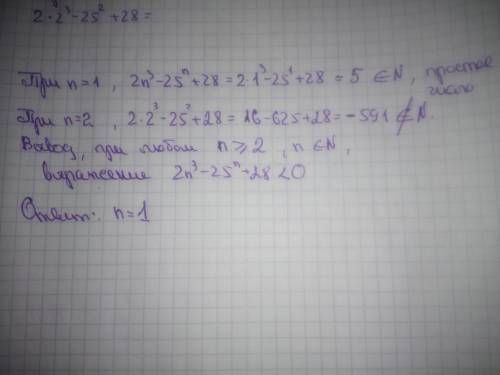 2·2³-25²+28=
При n=1, 2n³-25ⁿ+28=2·1³-25¹+28=5 ∈N, простое число
При n=2, 2·2³-25²+28=16-625+28=-591 ∉N.
Вывод, при любом n≥2, n∈N,
выражение 2n³-25ⁿ+28<0
Ответ: n=1